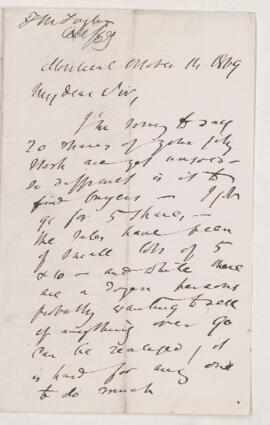 Oct/69
Montreal October 14. 1869
My dear Sir,
I'm sorry to say
20 shares of your City
Stock are yet unsold –
so difficult is it to
find buyers –
go for 5 share, –
the sales have been
of small lots of 5
& 10 – and while there
are a dozen persons
probably wanting to sell
if anything over 90
can be realized, it
is hard for any one
to do much